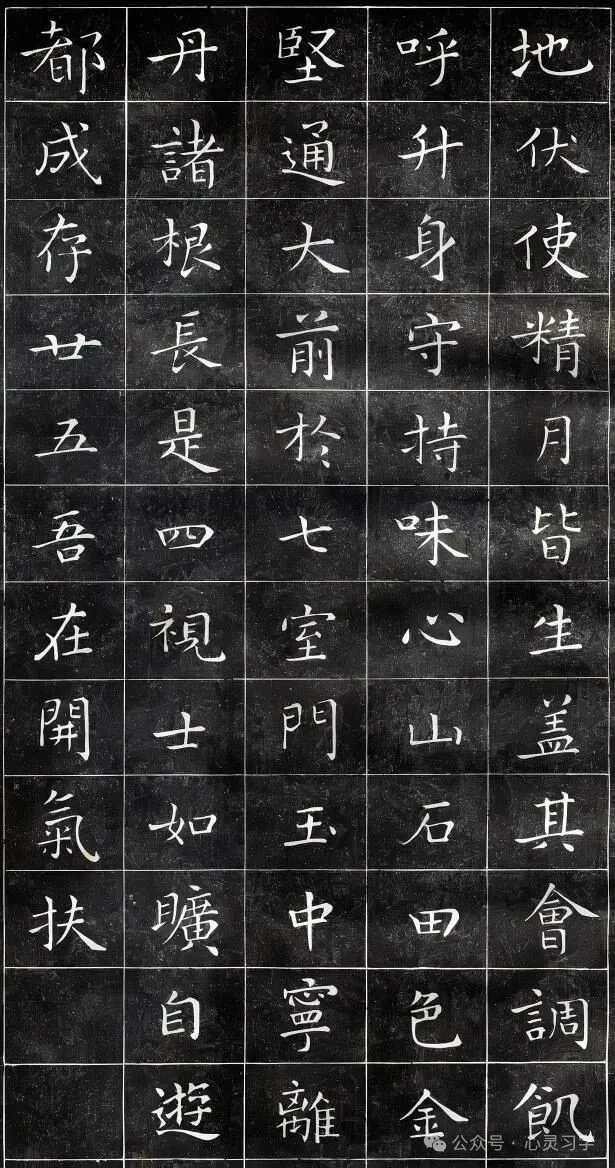 地伏使精月皆生盖其會調飢
呼升身守持味心山石田色金
堅通大前於七室門玉中寧離
丹諸根長是四視士如曠自遊
都成存廿五吾在開氣扶
公众号·心灵习字